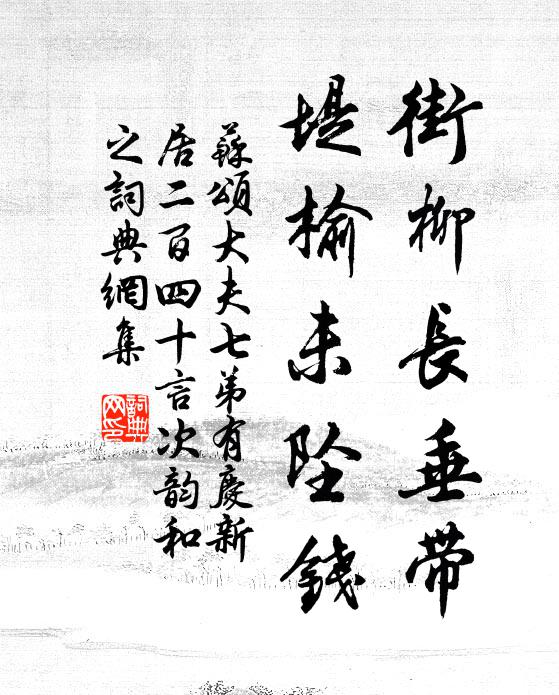 街柳長垂帶
堤榆未墜錢
蘇頌大夫七弟有慶新
居二百四十言次韵和
之詞典網集
詞典
网印